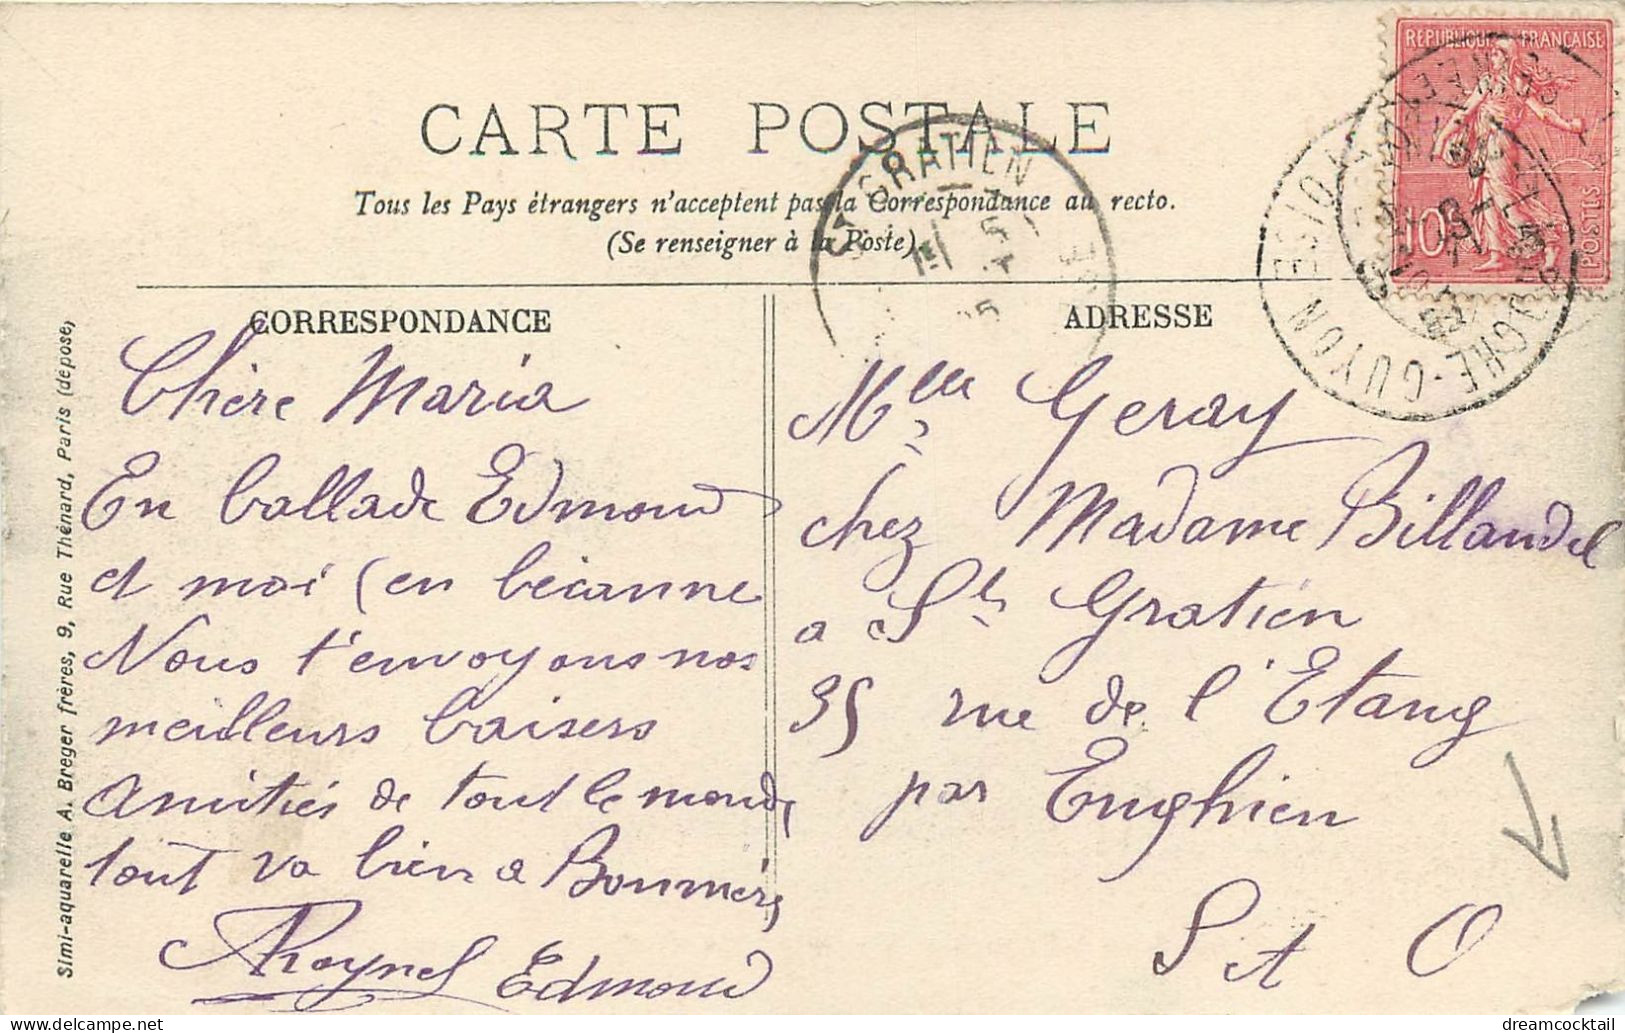 RÉPUBLIQUE FRANÇAISE
POSTES
10
CARTE POSTALE
Tous les Pays étrangers n'acceptent pas la Correspondance au recto.
(Se renseigner à la Poste).
ST GRATIEN
GUYON
CORRESPONDANCE
Chère Maria
En ballade Edmond
et moi (en bécanne
Nous t'envoyons nos
meilleurs baisers
amitiés de tout le monde
tout va bien a
Edmond
ADRESSE
Melle Geray
chez Madame Billaudel
a St Gratien
35 rue de l'Etang
par Enghien
S et O
Simi-aquarelle A. Breger frères, 9, Rue Thénard, Paris (déposé,
dreamcocktail